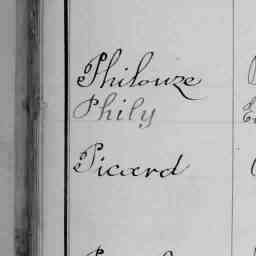 Philouze
Phily
Picard